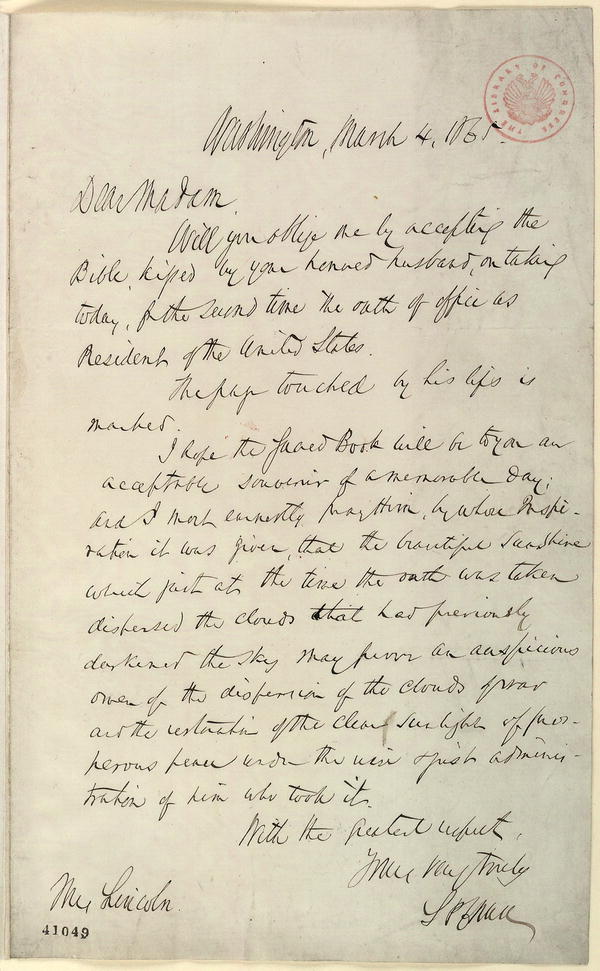 THE LIBRARY OF CONGRESS
Washington, March 4, 1865.
Dear Madam,
Will you oblige me by accepting the
Bible, kissed by your honored husband, on taking
today, for the second time the oath of office as
President of the United States.
The page touched by his lips is
marked.
I hope the Sacred Book will be to you an
acceptable souvenir of a memorable day;
and I most earnestly pray Him, by whose Inspi-
ration it was given, that the beautiful Sunshine
which just at the time the oath was taken
dispersed the clouds that had previously
darkened the sky may prove an auspicious
omen of the dispersion of the clouds of war
and the restoration of the clear sunlight of pros-
perous peace under the wise & just adminis-
tration of him who took it.
With the greatest respect,
Yours very truly
S P Chase
Mrs Lincoln.
41049